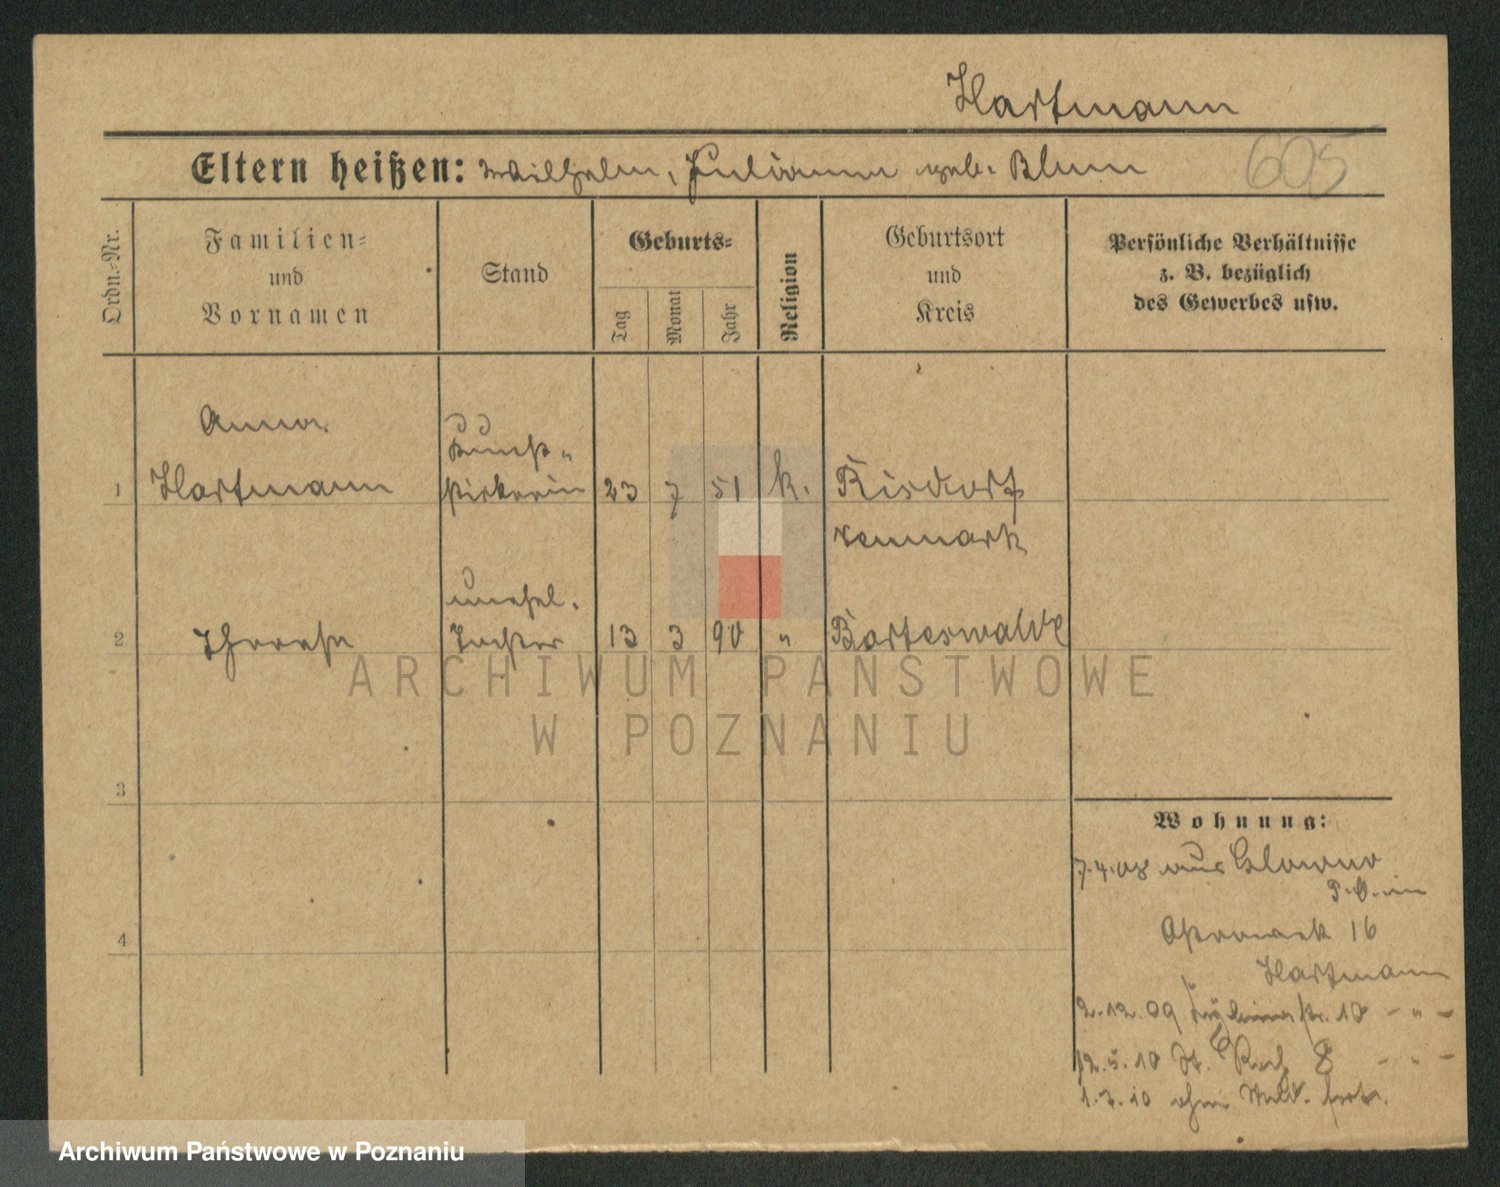 Hartmann
Eltern heißen: Wilhelm, Julianna geb. Blum
605
Ordn.-Nr.
Familien-
und
Vornamen
Stand
Geburts-
Tag
Monat
Jahr
Religion
Geburtsort
und
Kreis
Persönliche Verhältnisse
z. B. bezüglich
des Gewerbes usw.
Anna
Kunst-
1 Hartmann stickerin 23 7 51 k. Risdorf
unehel.
2 Therese Tochter 13 3 90 " Barteswalde
3
4
Wohnung:
7.4.08 aus Glowno
16
Hartmann
2.12.09 10 - " -
12.5.10 St. Roch 8 - " -
1.7.10 ohne Meld. fort.
ARCHIWUM PAŃSTWOWE
W POZNANIU
Archiwum Państwowe w Poznaniu